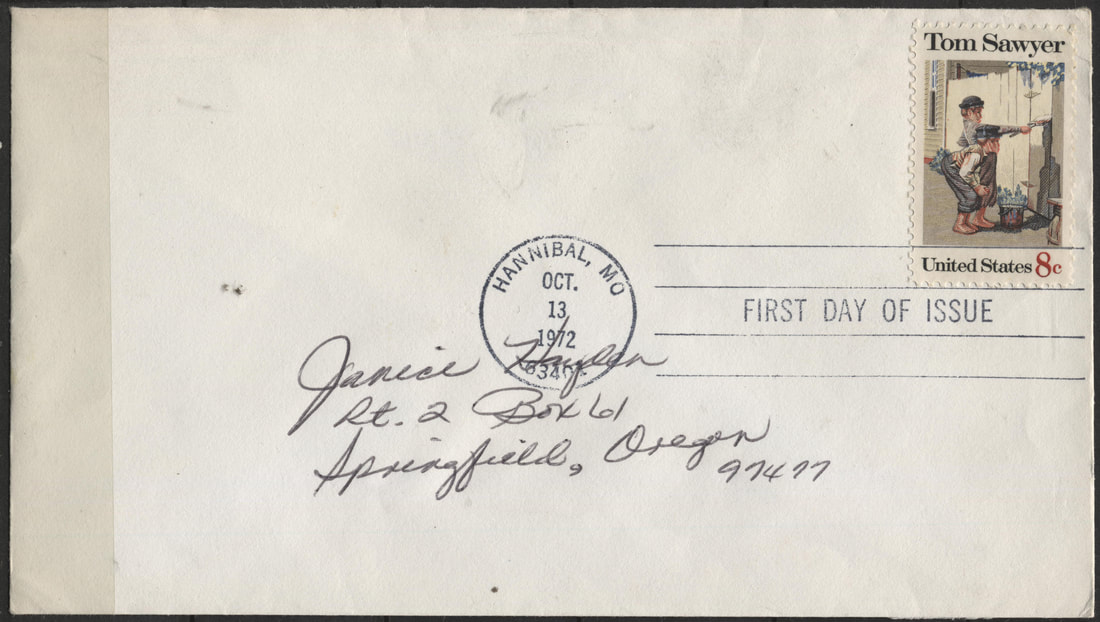 Tom Sawyer
United States 8c
HANNIBAL, MO
OCT.
13
1972
63401
FIRST DAY OF ISSUE
Janice Hayden
Rt. 2 Box 61
Springfield, Oregon
97477